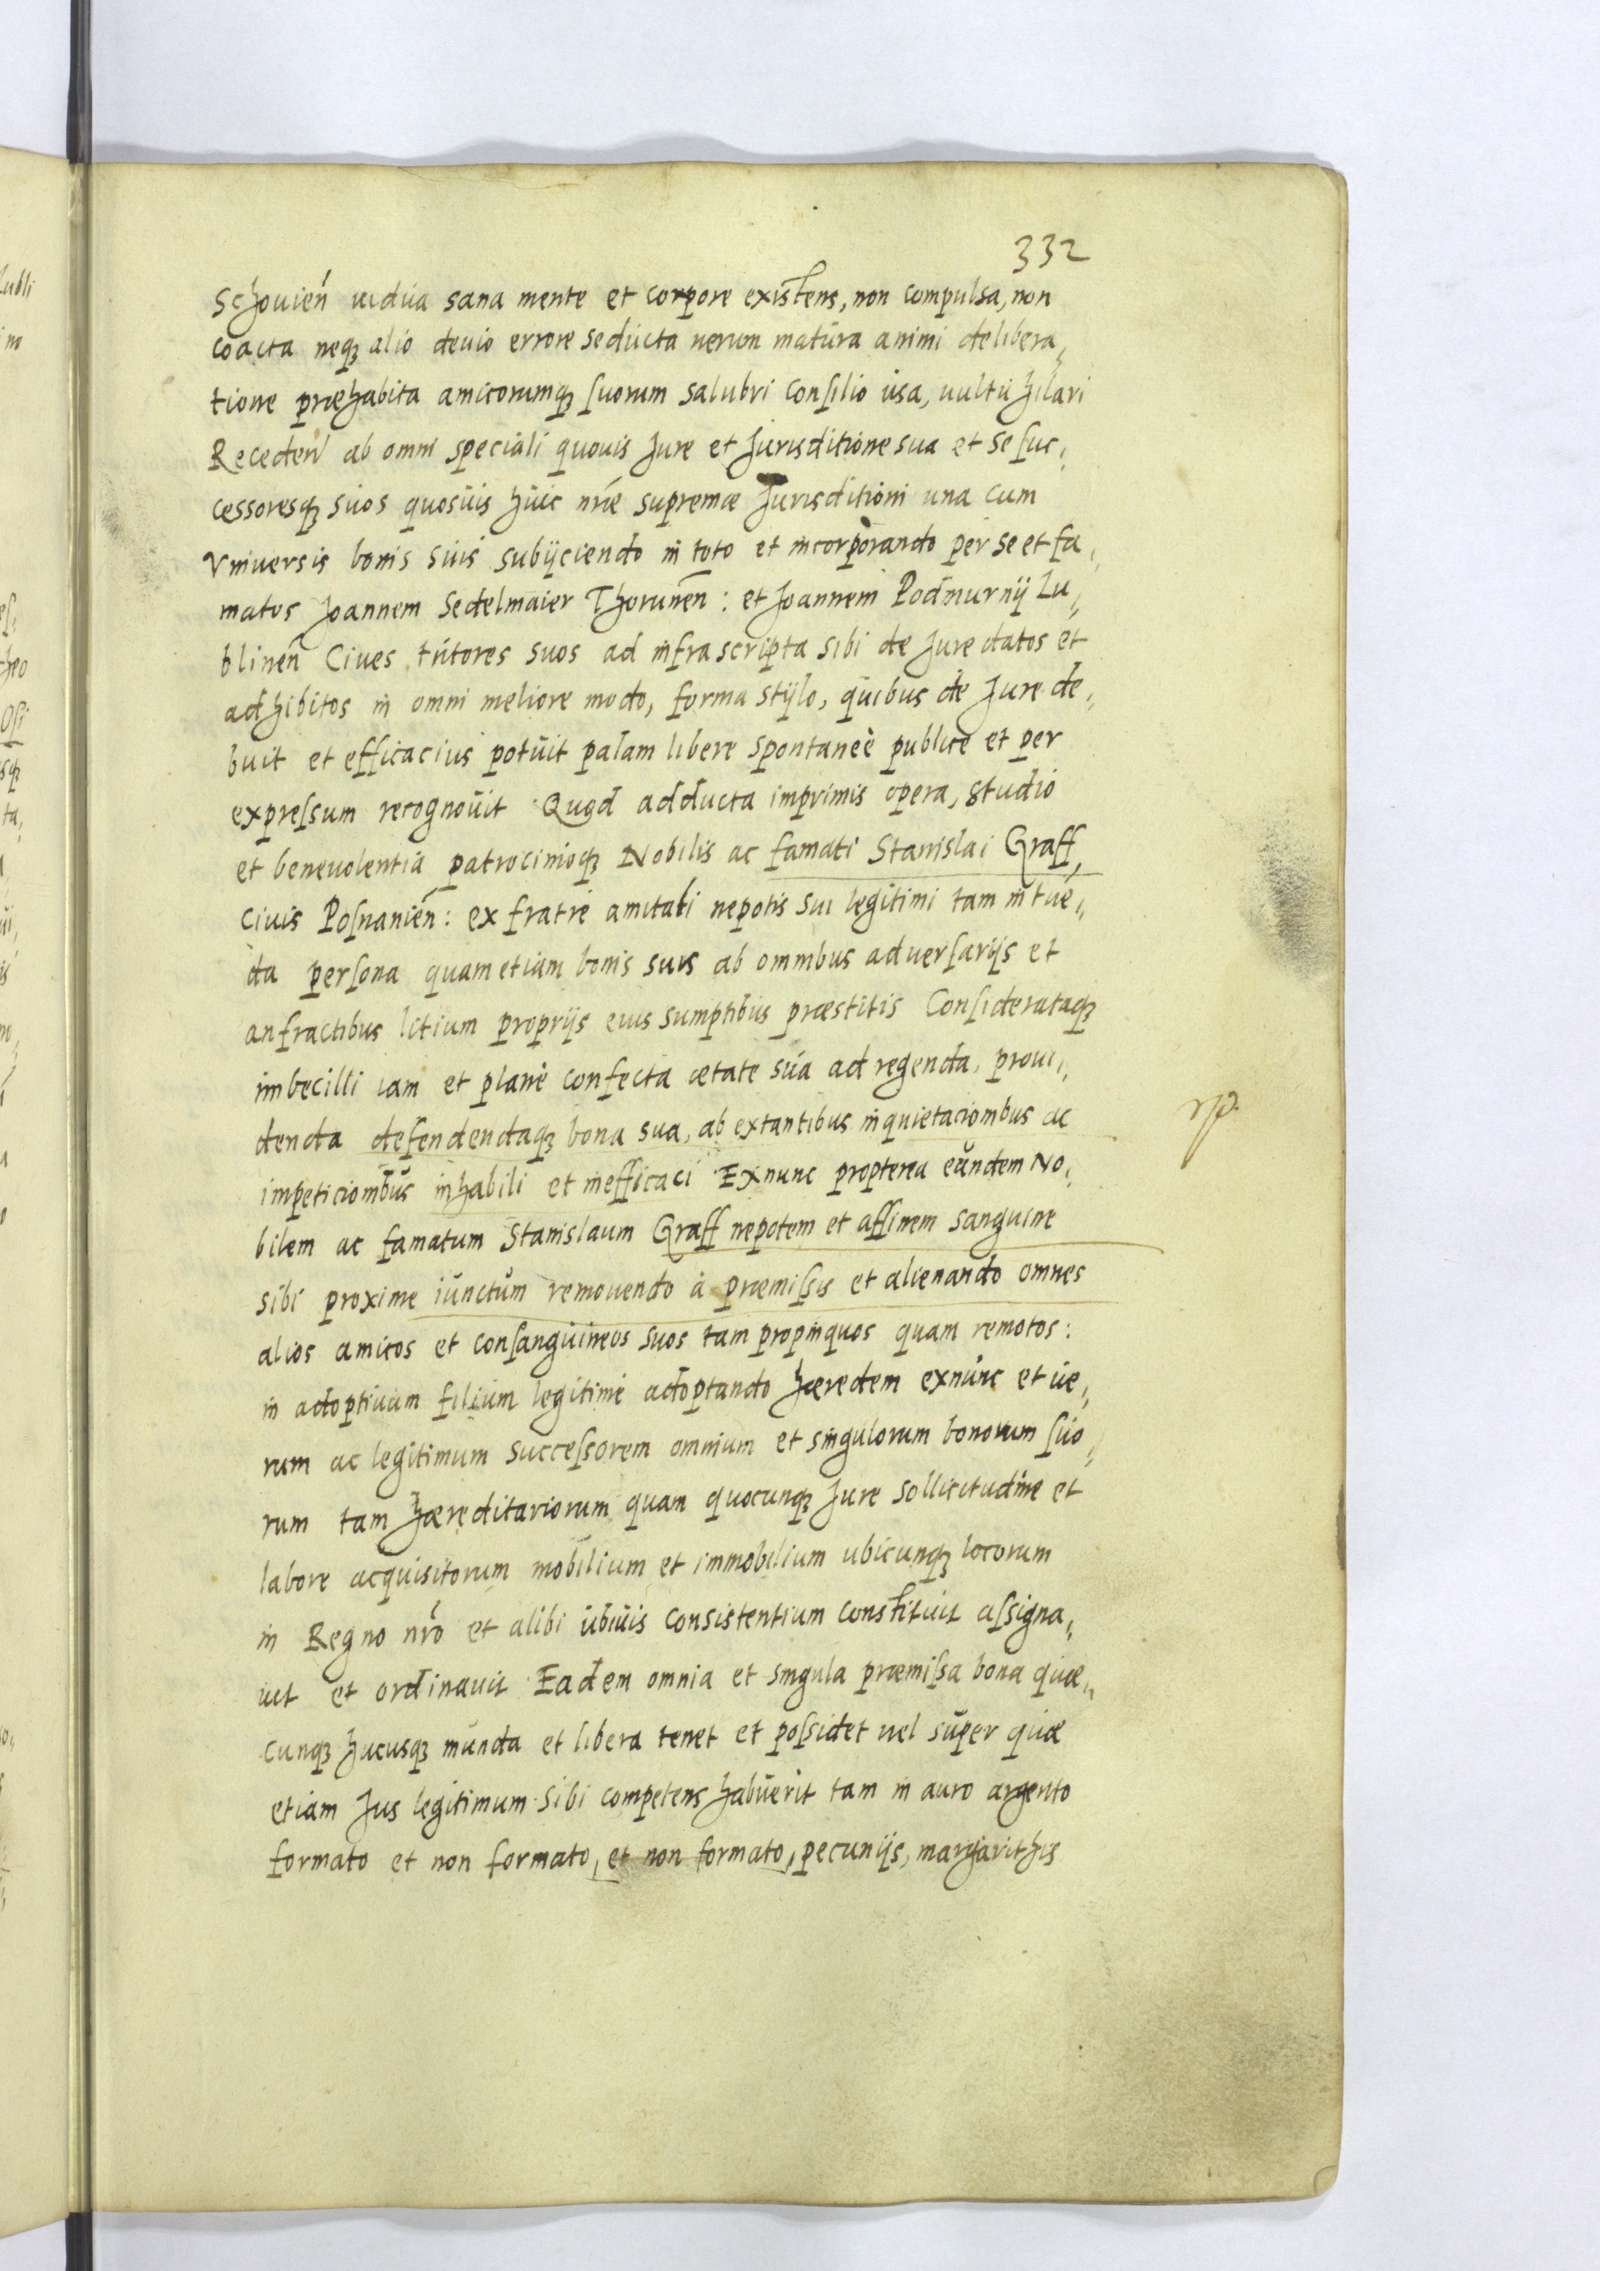 332
Schouień uidua sana mente et corpore existens, non compulsa, non
coacta neqȝ alio deuio errore seducta uerum matura animi delibera„
tione præhabita amicorumqȝ suorum salubri consilio usa, uultu hilari
Receden̄ ab omni speciali quouis Jure et Jurisditione sua et se suc„
cessoresqȝ suos quosuis huic nr̄e supremæ Jurisditioni una cum
Vniuersis bonis suis subijciendo in toto et incorporando per se et fa„
matos Joannem Sedelmaier Thorunen̄: et Joannem Podmurnij Lu„
blinen̄ Ciues tutores suos ad infrascripta sibi de Jure datos et
adhibitos in omni meliore modo, forma stijlo, quibus de Jure de„
buit et efficacius potuit palam libere spontaneè publice et per
expressum recognouit Quod adducta imprimis opera, studio
et beneuolentia patrocinioqȝ Nobilis ac famati Stanislai Graff,
Ciuis Posnanień: ex fratre amitali nepotis sui legitimi tam in tué„
da persona quam etiam bonis suis ab omnibus aduersarijs et
anfractibus litium proprijs eius sumptibus præstitis Considerataqȝ
imbecilli iam et planè confecta ætate sua ad regenda, proui„
denda defendendaqȝ bona sua, ab extantibus inquietacionibus ac
impeticionibus inhabili et inefficaci Exnunc propterea eundem No„
bilem ac famatum Stanislaum Graff nepotem et affinem sanguine
sibi proxime iunctum remouendo à præmissis et alienando omnes
alios amicos et consanguineos suos tam propinquos quam remotos:
in adoptiuum filium legitimè adoptando hæredem exnunc et ue„
rum ac legitimum successorem omnium et singulorum bonorum suo„
rum tam hæreditariorum quam quocunqȝ Jure sollicitudine et
labore acquisitorum mobilium et immobilium ubicunqȝ locorum
in Regno nr̄o et alibi ubiuis consistentium constituit assigna„
uit et ordinauit Eadem omnia et singula præmissa bona quæ„
cunqȝ hucusqȝ munda et libera tenet et possidet uel super quæ
etiam Jus legitimum sibi competens habuerit tam in auro argento
formato et non formato, et non formato, pecunijs, margarithis